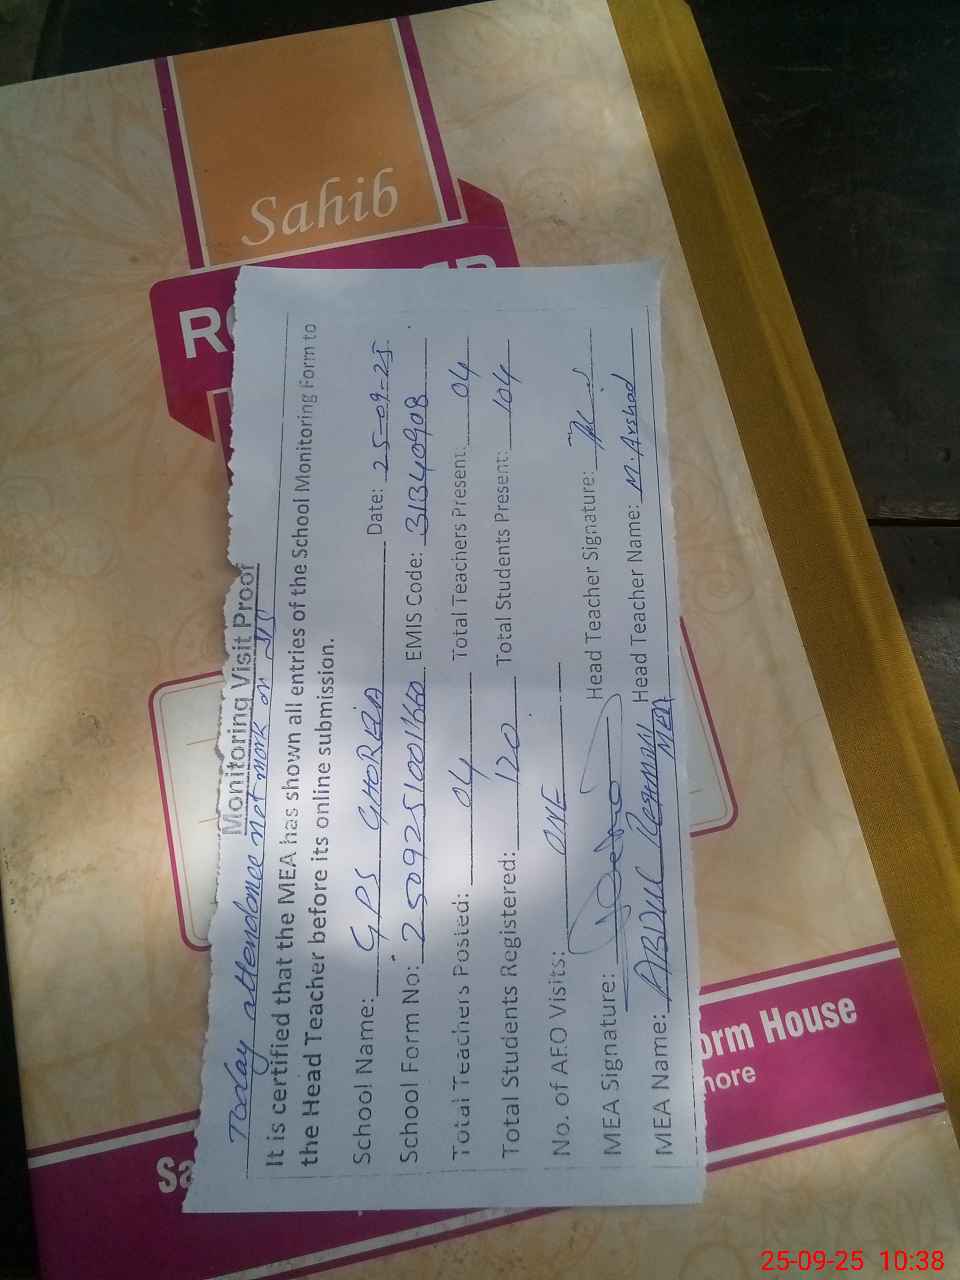 Sahib
R
Monitoring Visit Proof
Today attendance not mark on
It is certified that the MEA has shown all entries of the School Monitoring Form to
the Head Teacher before its online submission.
School Name: GPS GHOREIA Date: 25-09-25
School Form No: 2509251001660 EMIS Code: 31340908
Total Teachers Posted: 04 Total Teachers Present: 04
Total Students Registered: 120 Total Students Present: 104
No. of AEO Visits: ONE
MEA Signature: Head Teacher Signature:
MEA Name: ABDUL REHMAN MEA Head Teacher Name: M. Arshad
Sa orm House
hore
25-09-25 10:38